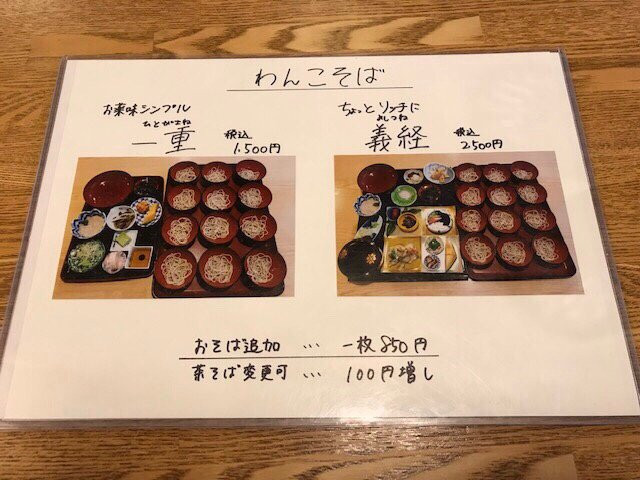 わんこそば
お薬味シンプル
ひとがさね
一重 税込 1.500円
ちょっとリッチに
よしつね
義経 税込 2.500円
おそば追加 … 一枚850円
茶そば変更可 … 100円増し